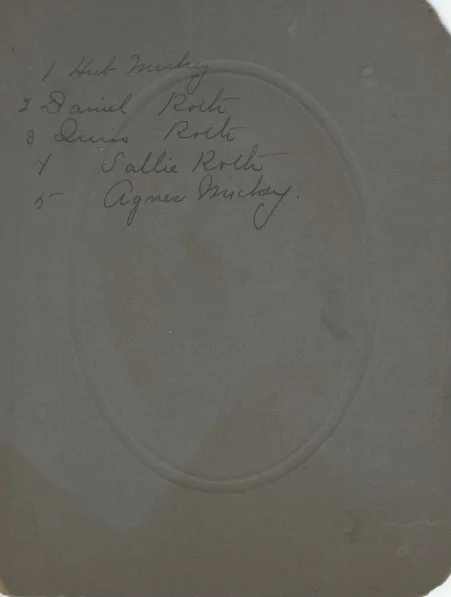 1 Hub Mickey
2 Daniel Roth
3 Roth
4 Sallie Roth
5 Agnes Mickey.